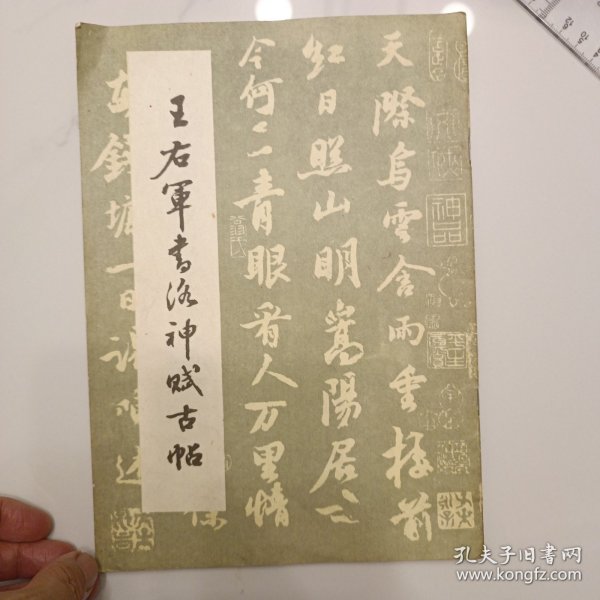 王右軍書洛神賦古帖
天際烏雲含雨重樓前
紅日照山明嵩陽居士
今何在青眼看人万里情
錢塘一日謁
神品
孔夫子旧书网
www.kongfz.com